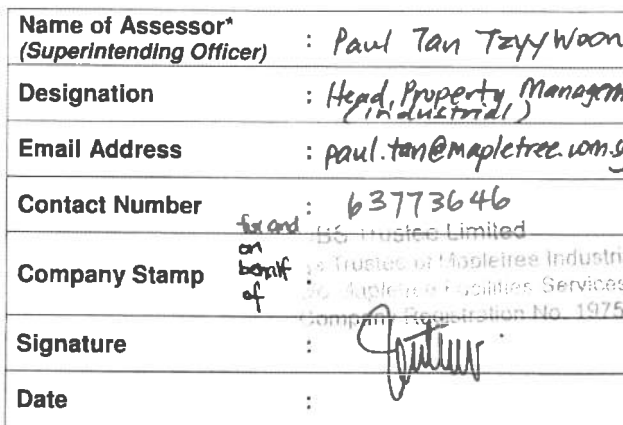 Name of Assessor* : Paul Tan Tzyy Woon
(Superintending Officer)
Designation : Head, Property Managem
(industrial)
Email Address : paul.tan@mapletree.com.sg
Contact Number : 63773646
for and
on
behalf
of
BS Trustee Limited
as Trustee of Mapletree Industri
c/o Mapletree Facilities Services
Company Registration No. 1975
Company Stamp :
Signature :
Date :